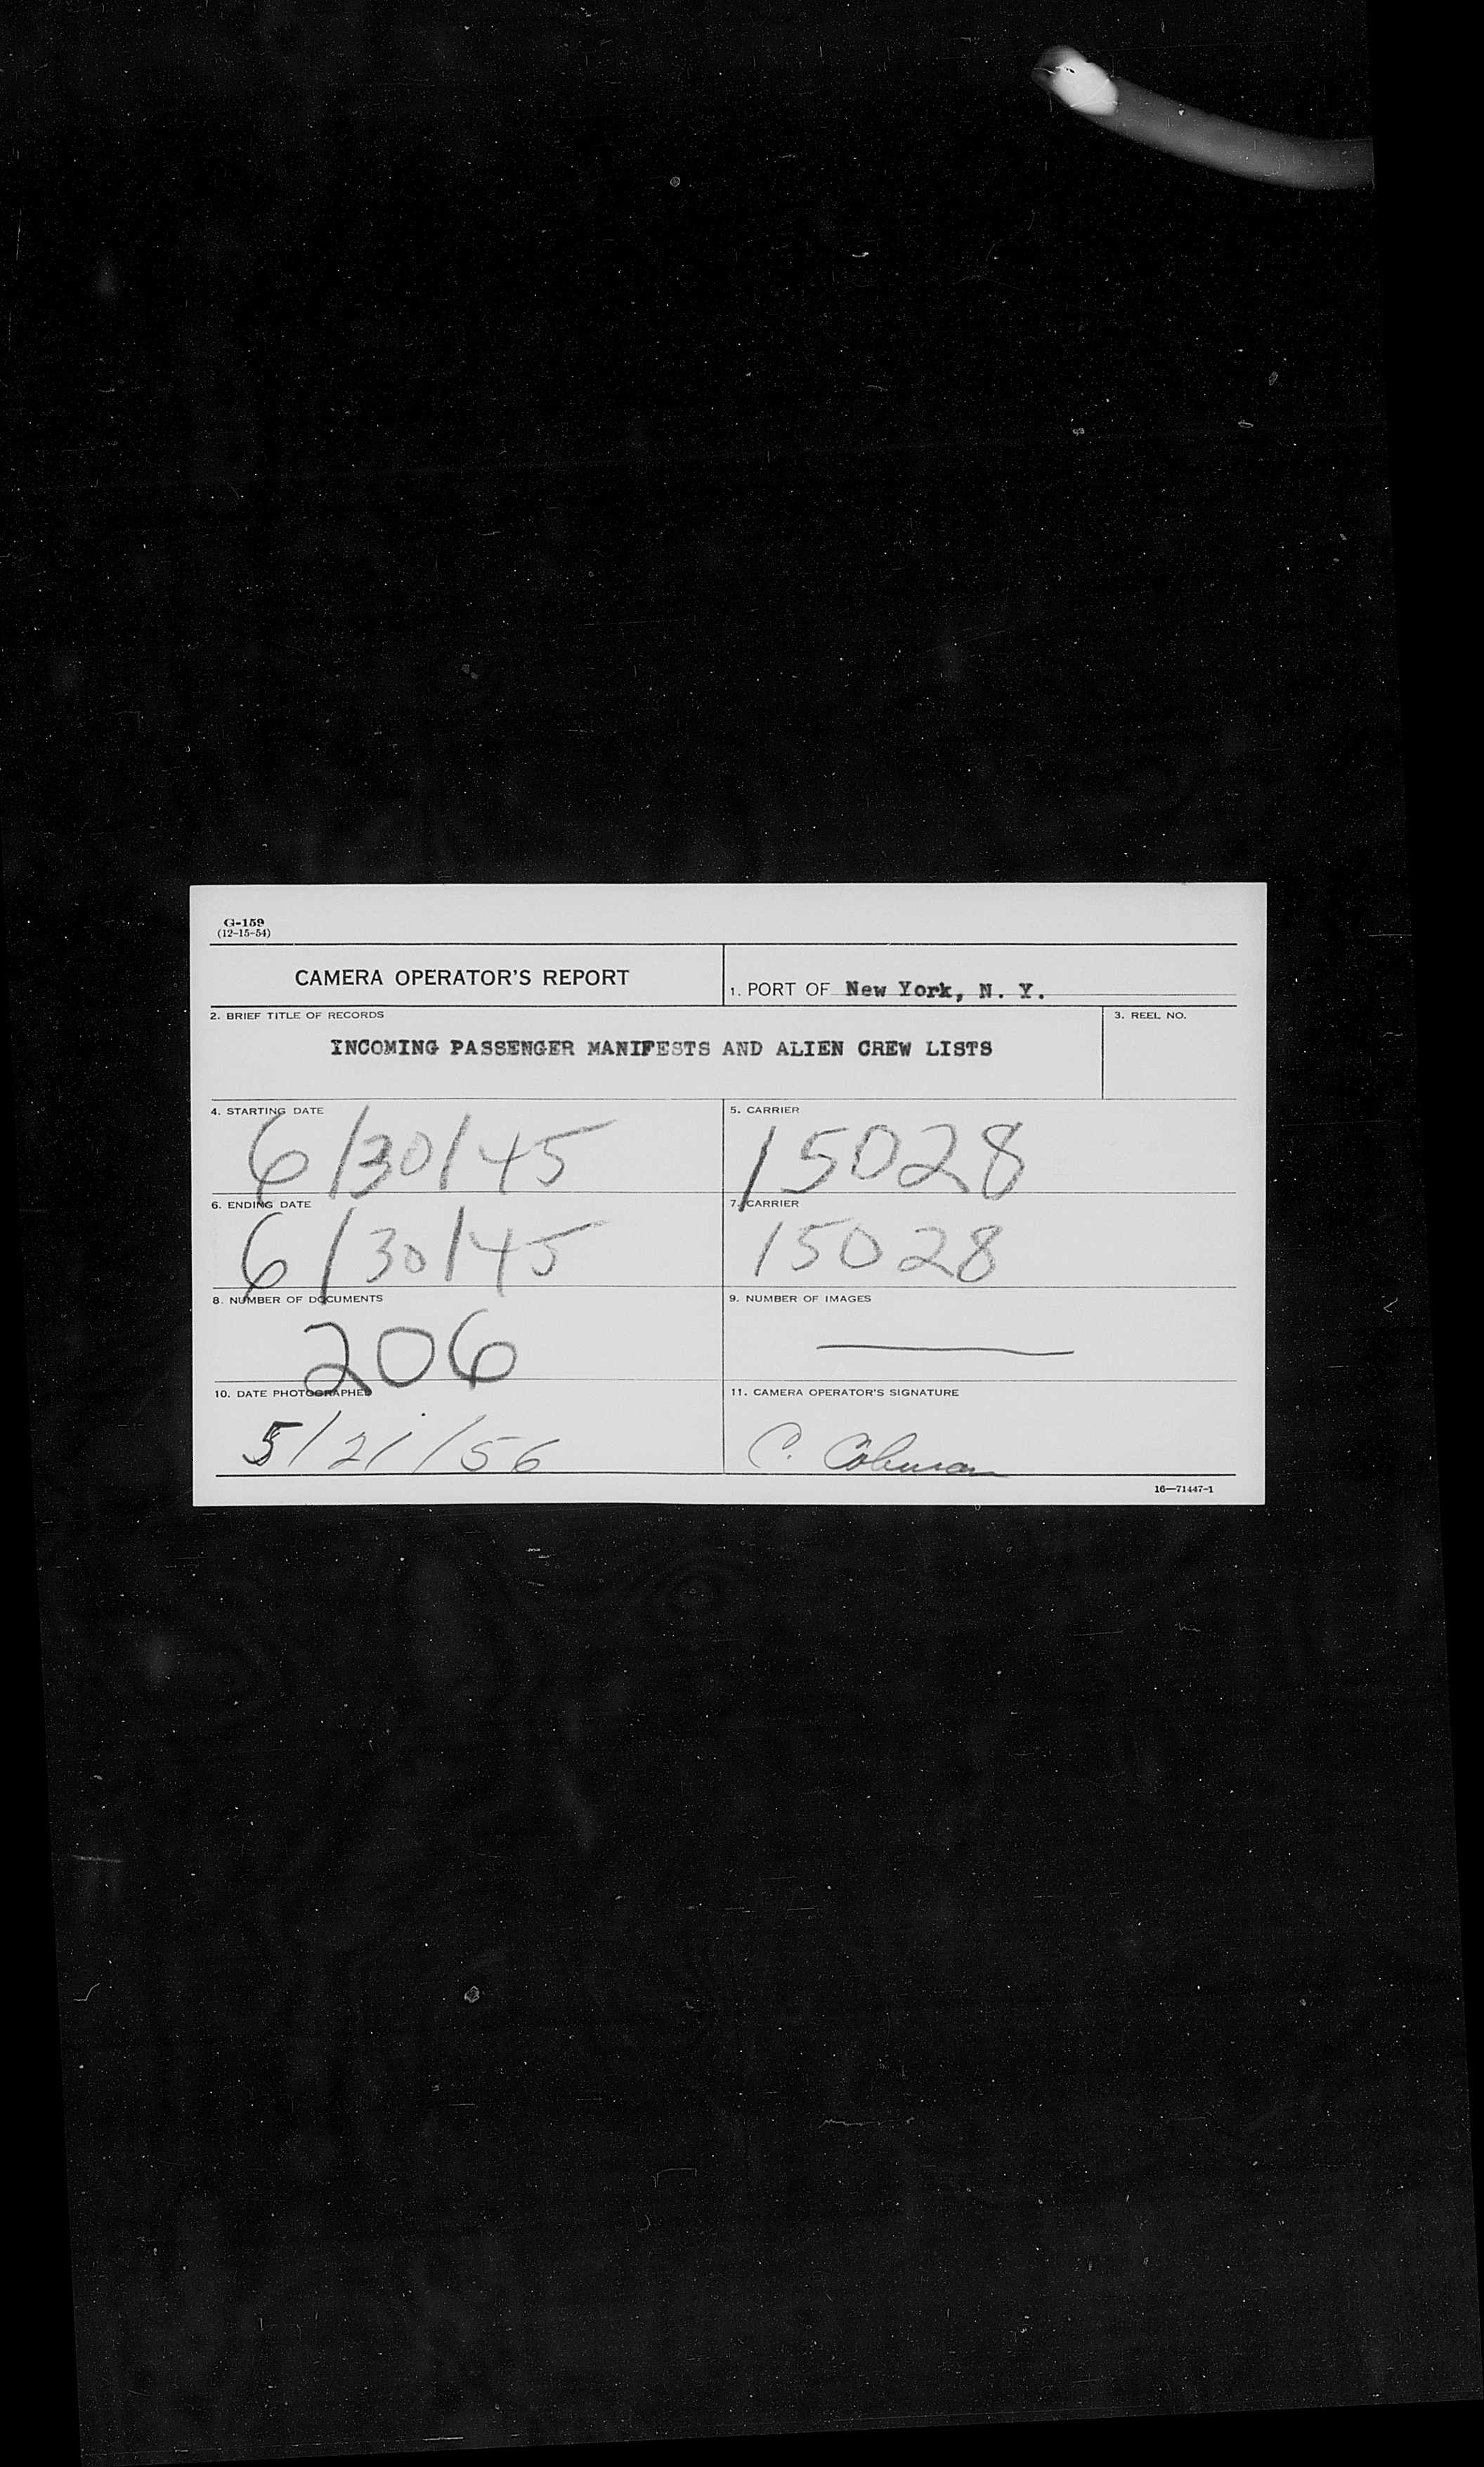 G-159
(12-15-54)
CAMERA OPERATOR'S REPORT
1. PORT OF New York, N. Y.
2. BRIEF TITLE OF RECORDS
INCOMING PASSENGER MANIFESTS AND ALIEN CREW LISTS
3. REEL NO.
4. STARTING DATE
6/30/45
5. CARRIER
15028
6. ENDING DATE
6/30/45
7. CARRIER
15028
8. NUMBER OF DOCUMENTS
206
9. NUMBER OF IMAGES
10. DATE PHOTOGRAPHED
5/21/56
11. CAMERA OPERATOR'S SIGNATURE
C.
16—71447-1